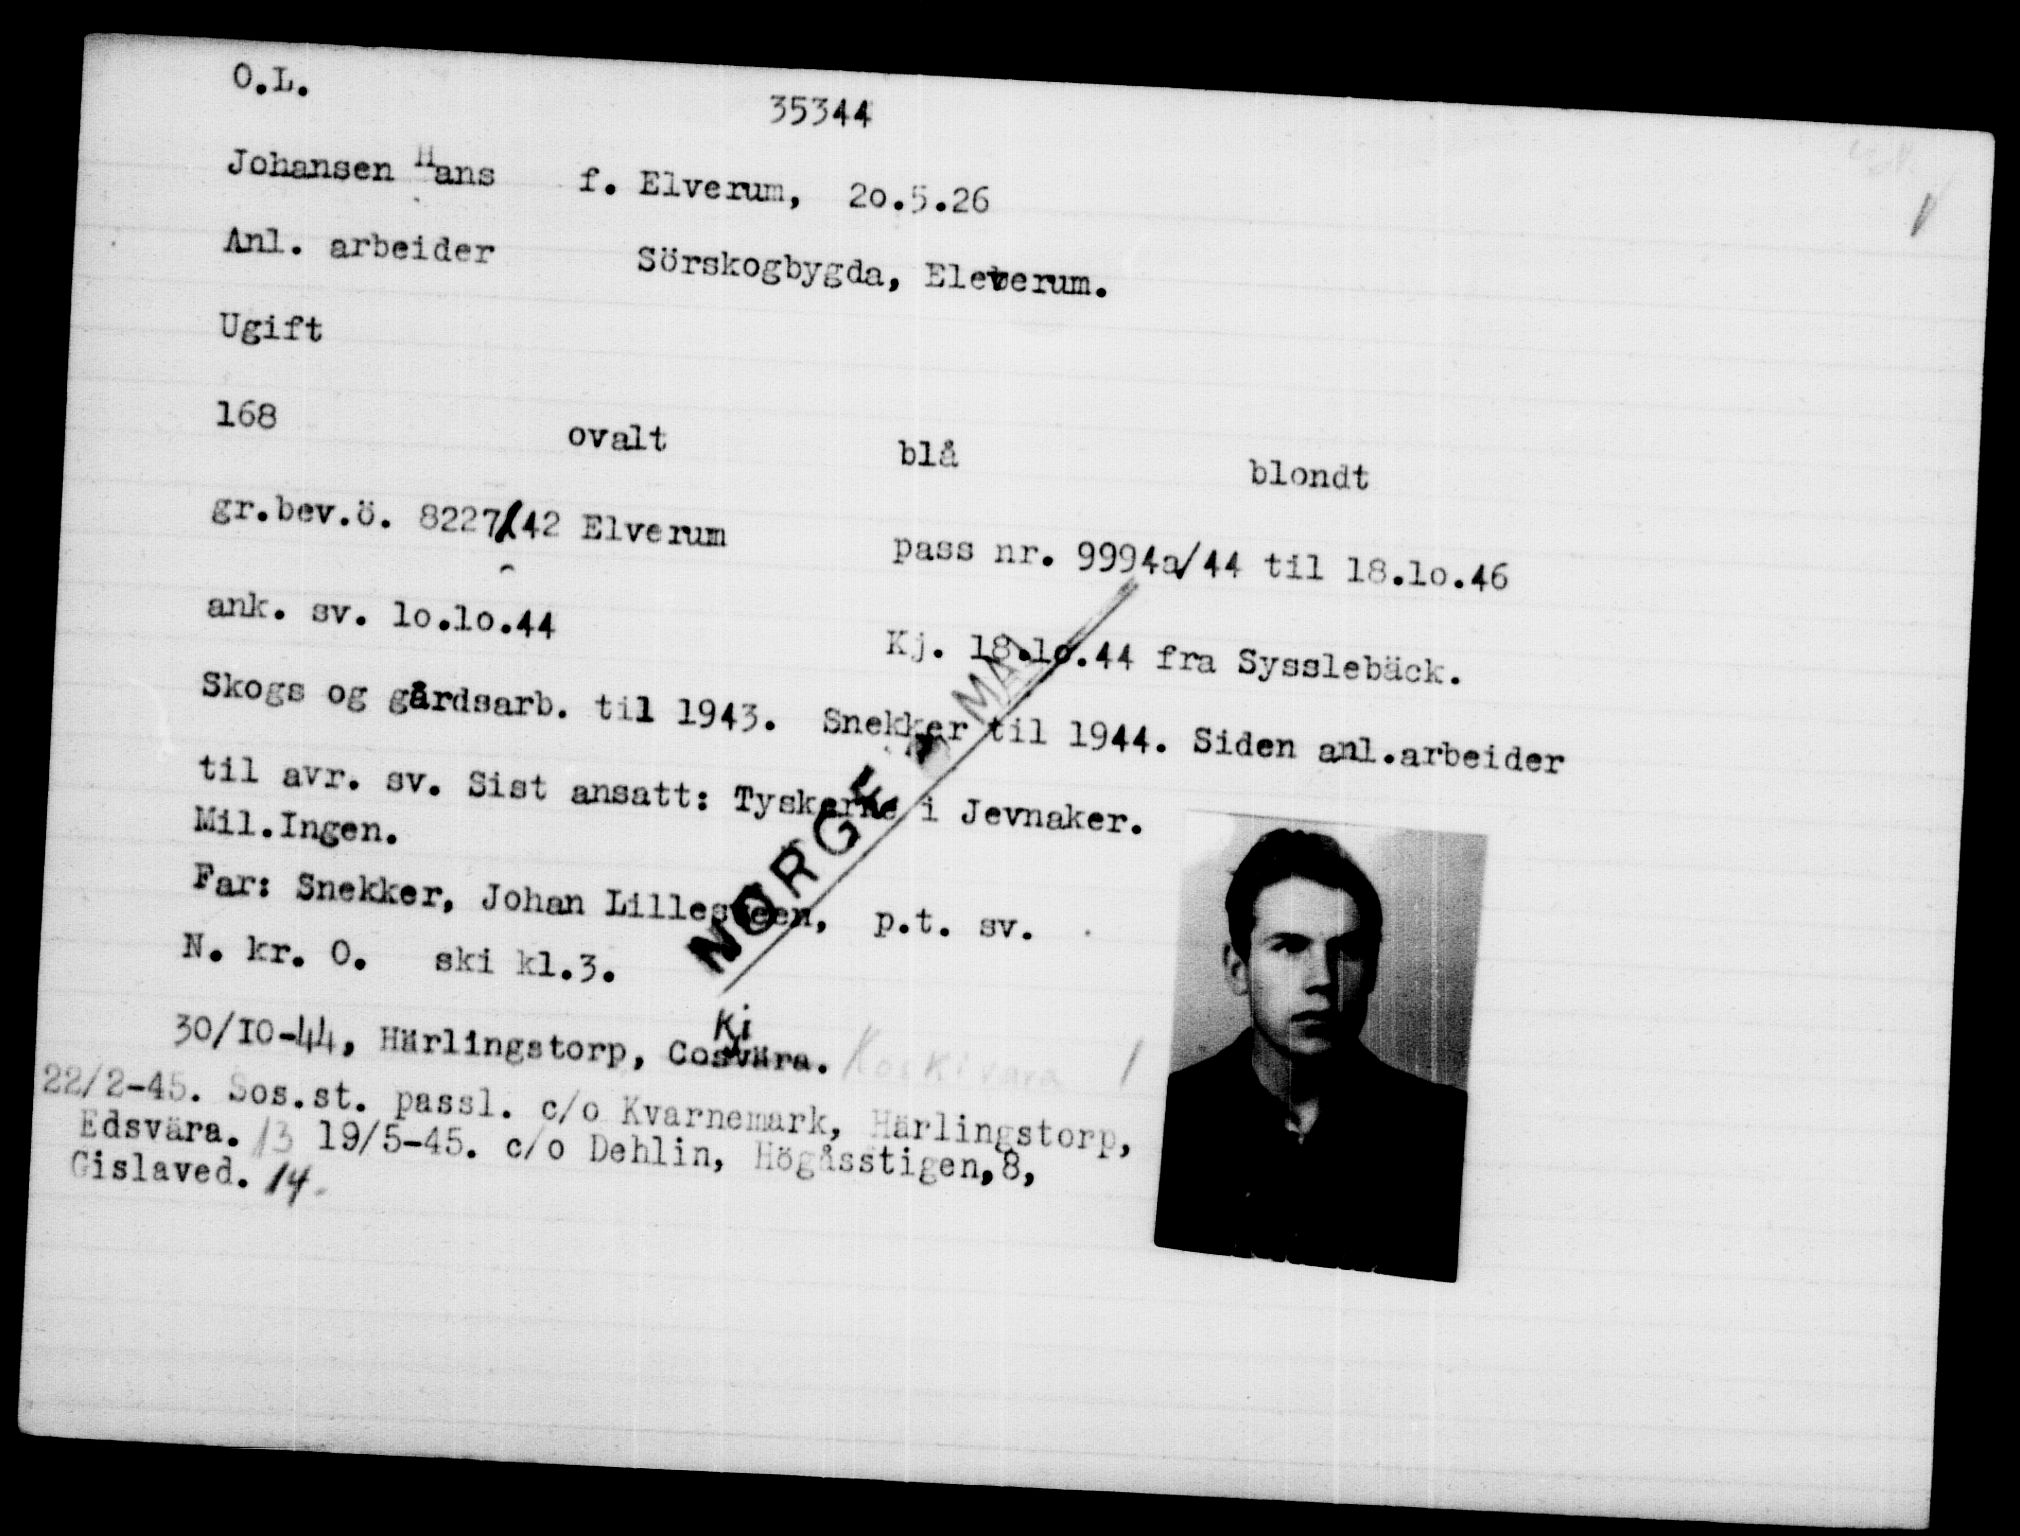 O.L.
35344
Johansen Hans f. Elverum, 2o.5.26
Anl. arbeider Sörskogbygda, Eleverum.
Ugift
168 ovalt blå blondt
gr.bev.ö. 8227/42 Elverum pass nr. 9994a/44 til 18.1o.46
ank. sv. 1o.1o.44 Kj. 18.1o.44 fra Sysslebäck.
Skogs og gårdsarb. til 1943. Snekker til 1944. Siden anl.arbeider
til avr. sv. Sist ansatt: Tyskerne i Jevnaker.
Mil.Ingen.
Far: Snekker, Johan Lillesveen, p.t. sv.
N. kr. O. ski kl.3.
NORGE MAI
Kj
30/10-44, Härlingstorp, Cosvära. Koskivara 1
22/2-45. Sos.st. passl. c/o Kvarnemark, Härlingstorp,
Edsvära. 13 19/5-45. c/o Dehlin, Högåsstigen,8,
Gislaved. 14.